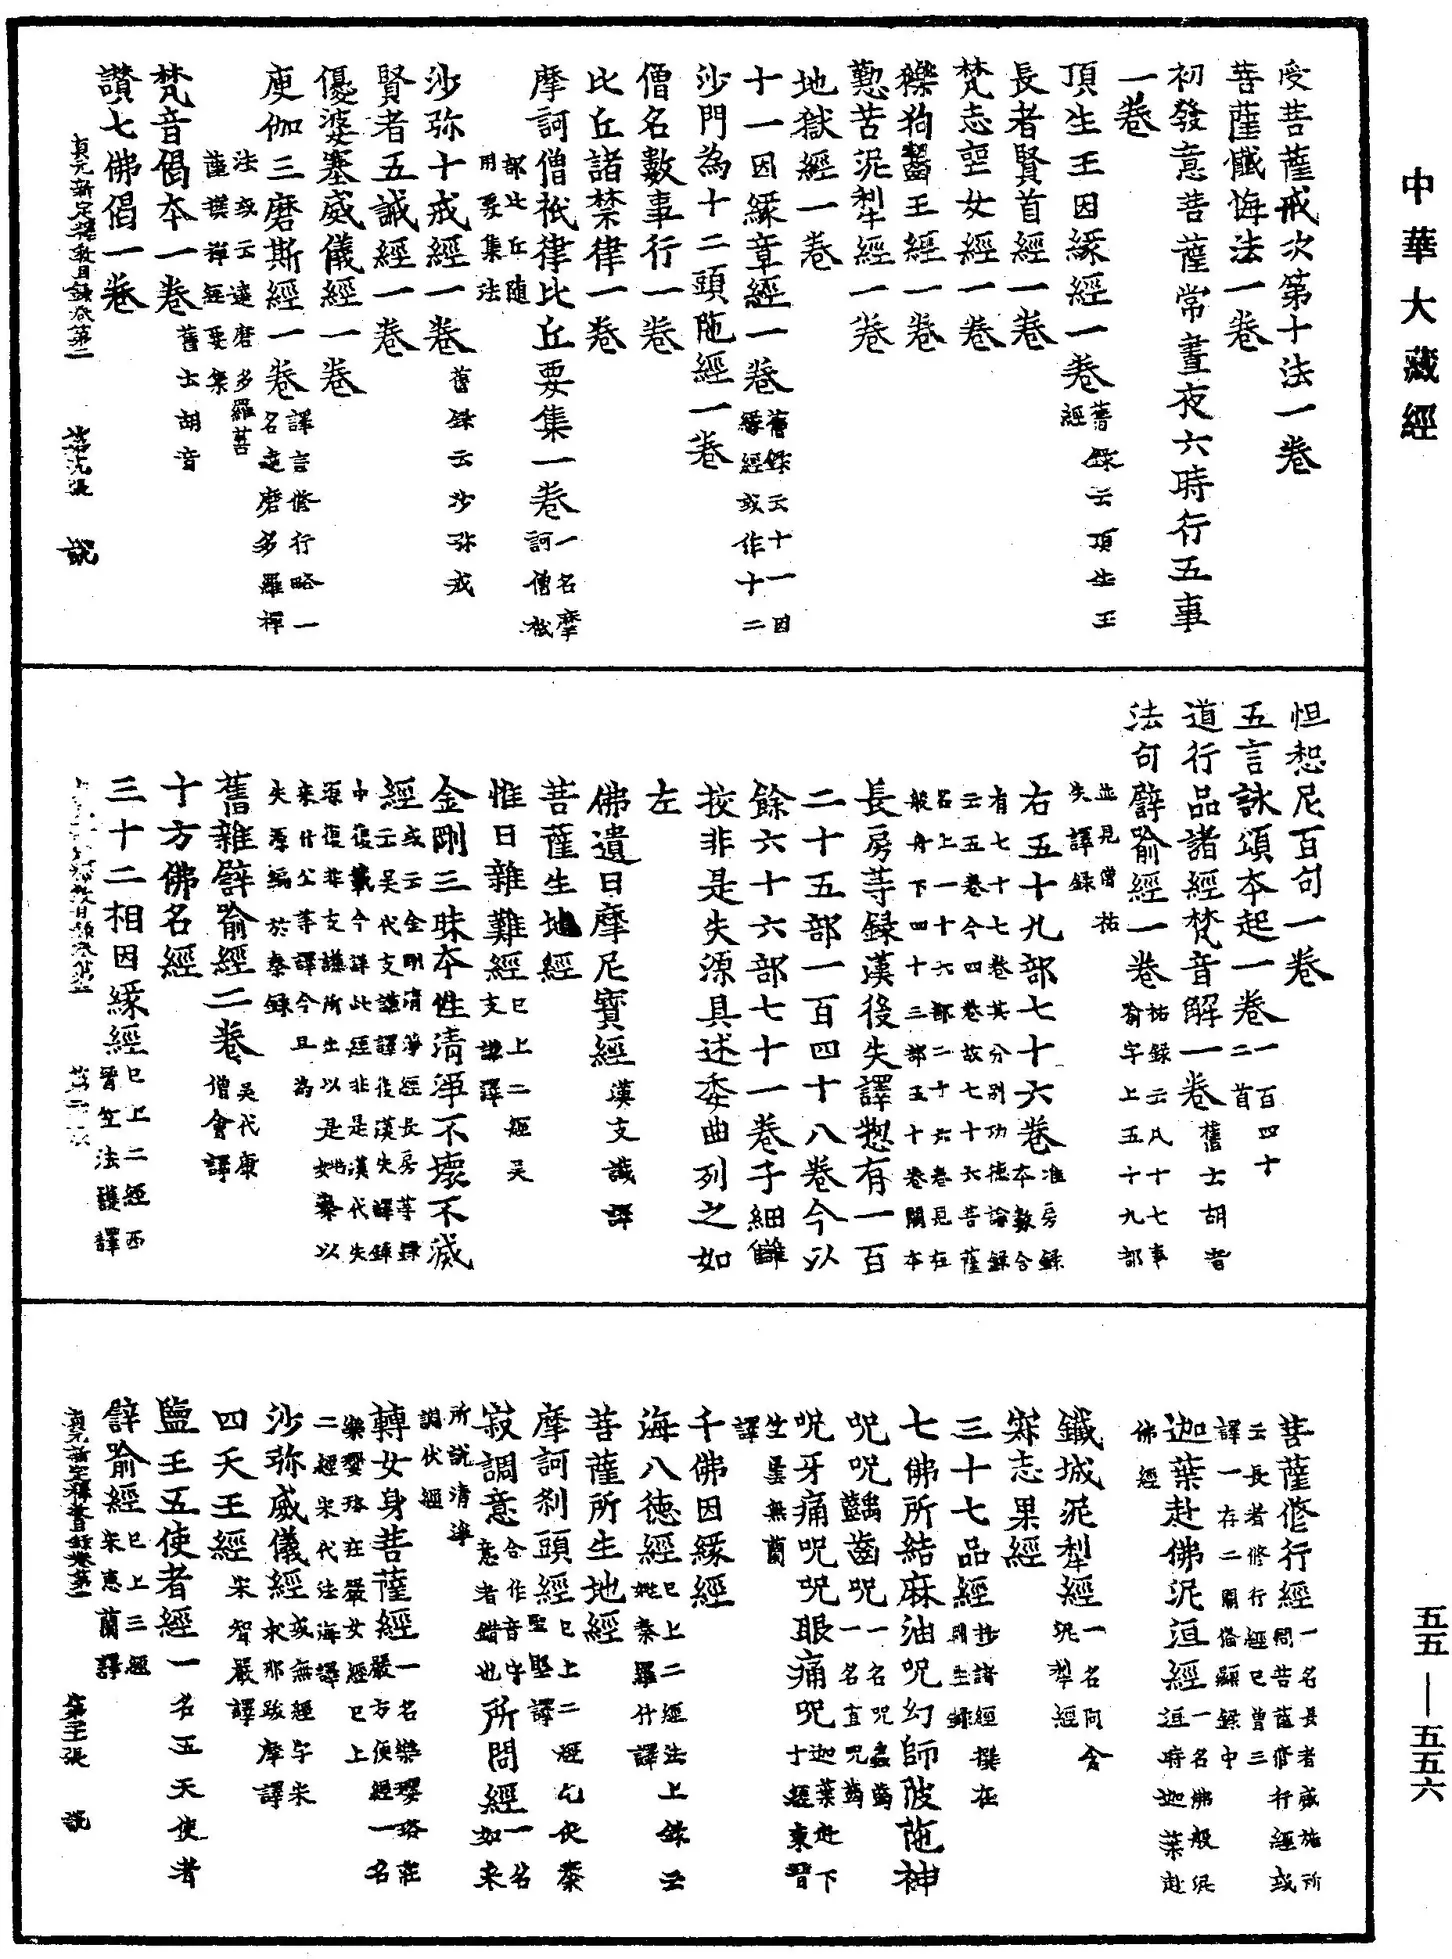 中華大藏經
受菩薩戒次第十法一卷
菩薩懺悔法一卷
初發意菩薩常晝夜六時行五事
一卷
頂生王因緣經一卷舊錄云頂生王
經
長者賢首經一卷
梵志喪女經一卷
㹱狗齧王經一卷
懃苦泥犁經一卷
地獄經一卷
十一因緣章經一卷舊錄云十一因
緣經或作十二
沙門為十二頭陁經一卷
僧名數事行一卷
比丘諸禁律一卷
摩訶僧祇律比丘要集一卷一名摩
訶僧祇
部比丘隨
用要集法
沙弥十戒經一卷舊錄云沙弥戒
賢者五誡經一卷
優波婆塞威儀經一卷
庾伽三磨斯經一卷譯言修行略一
名達磨多羅禪
法或云達磨多羅菩
薩撰禪經要集
梵音偈本一卷舊士胡音
讚七佛偈一卷
貞元新定釋教目錄卷第二
怛惒尼百句一卷
五言詠頌本起一卷一百四十
二首
道行品諸經梵音解一卷舊士胡音
法句譬喻經一卷祐錄云凡十七事
喻字上五十九部
並見僧祐
失譯錄
右五十九部七十六卷准房錄
本數合
有七十七卷其分別功德論錄
云五卷今四卷故七十六菩薩
名上一十六部二十六卷見在
般舟下四十三部五十卷闕本
長房等録漢後失譯惣有一百
二十五部一百四十八卷今以
餘六十六部七十一卷子細讎
挍非是失源具述委曲列之如
左
佛遺日摩尼寶經漢支讖譯
菩薩生地經
惟日雜難經已上二經吳
支謙譯
金剛三昧本性清淨不壞不滅
經或云金剛清淨經長房等錄
云吳代支謙譯後漢失譯錄
中復載今詳此經非是漢代失
源復非支謙所出以是姚秦以
來什公等譯今且為
失源編於秦錄
舊雜譬喻經二卷吳代康
僧會譯
十方佛名經
三十二相因緣經已上二經西
晉竺法護譯
菩薩修行經一名長者威施所
問菩薩修行經或
云長者修行經已曾三
譯一存二闕俗顯錄中
迦葉赴佛泥洹經一名佛般泥
洹時迦葉赴
佛經
鐵城泥犁經一名阿含
泥犁經
柰志果經
三十七品經抄諸經撰在
別生錄
七佛所結麻油呪幻師陂陁神
呪呪齲齒呪一名呪蟲齒
一名直呪齒
呪牙痛呪呪眼痛呪迦葉赴下
十經東晉
竺曇無蘭
譯
千佛因緣經
海八德經已上二經法上錄云
姚秦羅什譯
菩薩所生地經
摩訶剎頭經已上二經乞伏秦
聖堅譯
寂調意所問經一名
如來
合作音字
意者錯也
所說清淨
調伏經
轉女身菩薩經一名樂瓔珞莊
嚴方便經一名
樂瓔珞莊嚴女經已上
二經宋代法海譯
沙弥威儀經或無經字宋
求那跋摩譯
四天王經宋智嚴譯
鹽王五使者經一名五天使者
譬喻經已上三經
宋惠蘭譯
五五—五五六